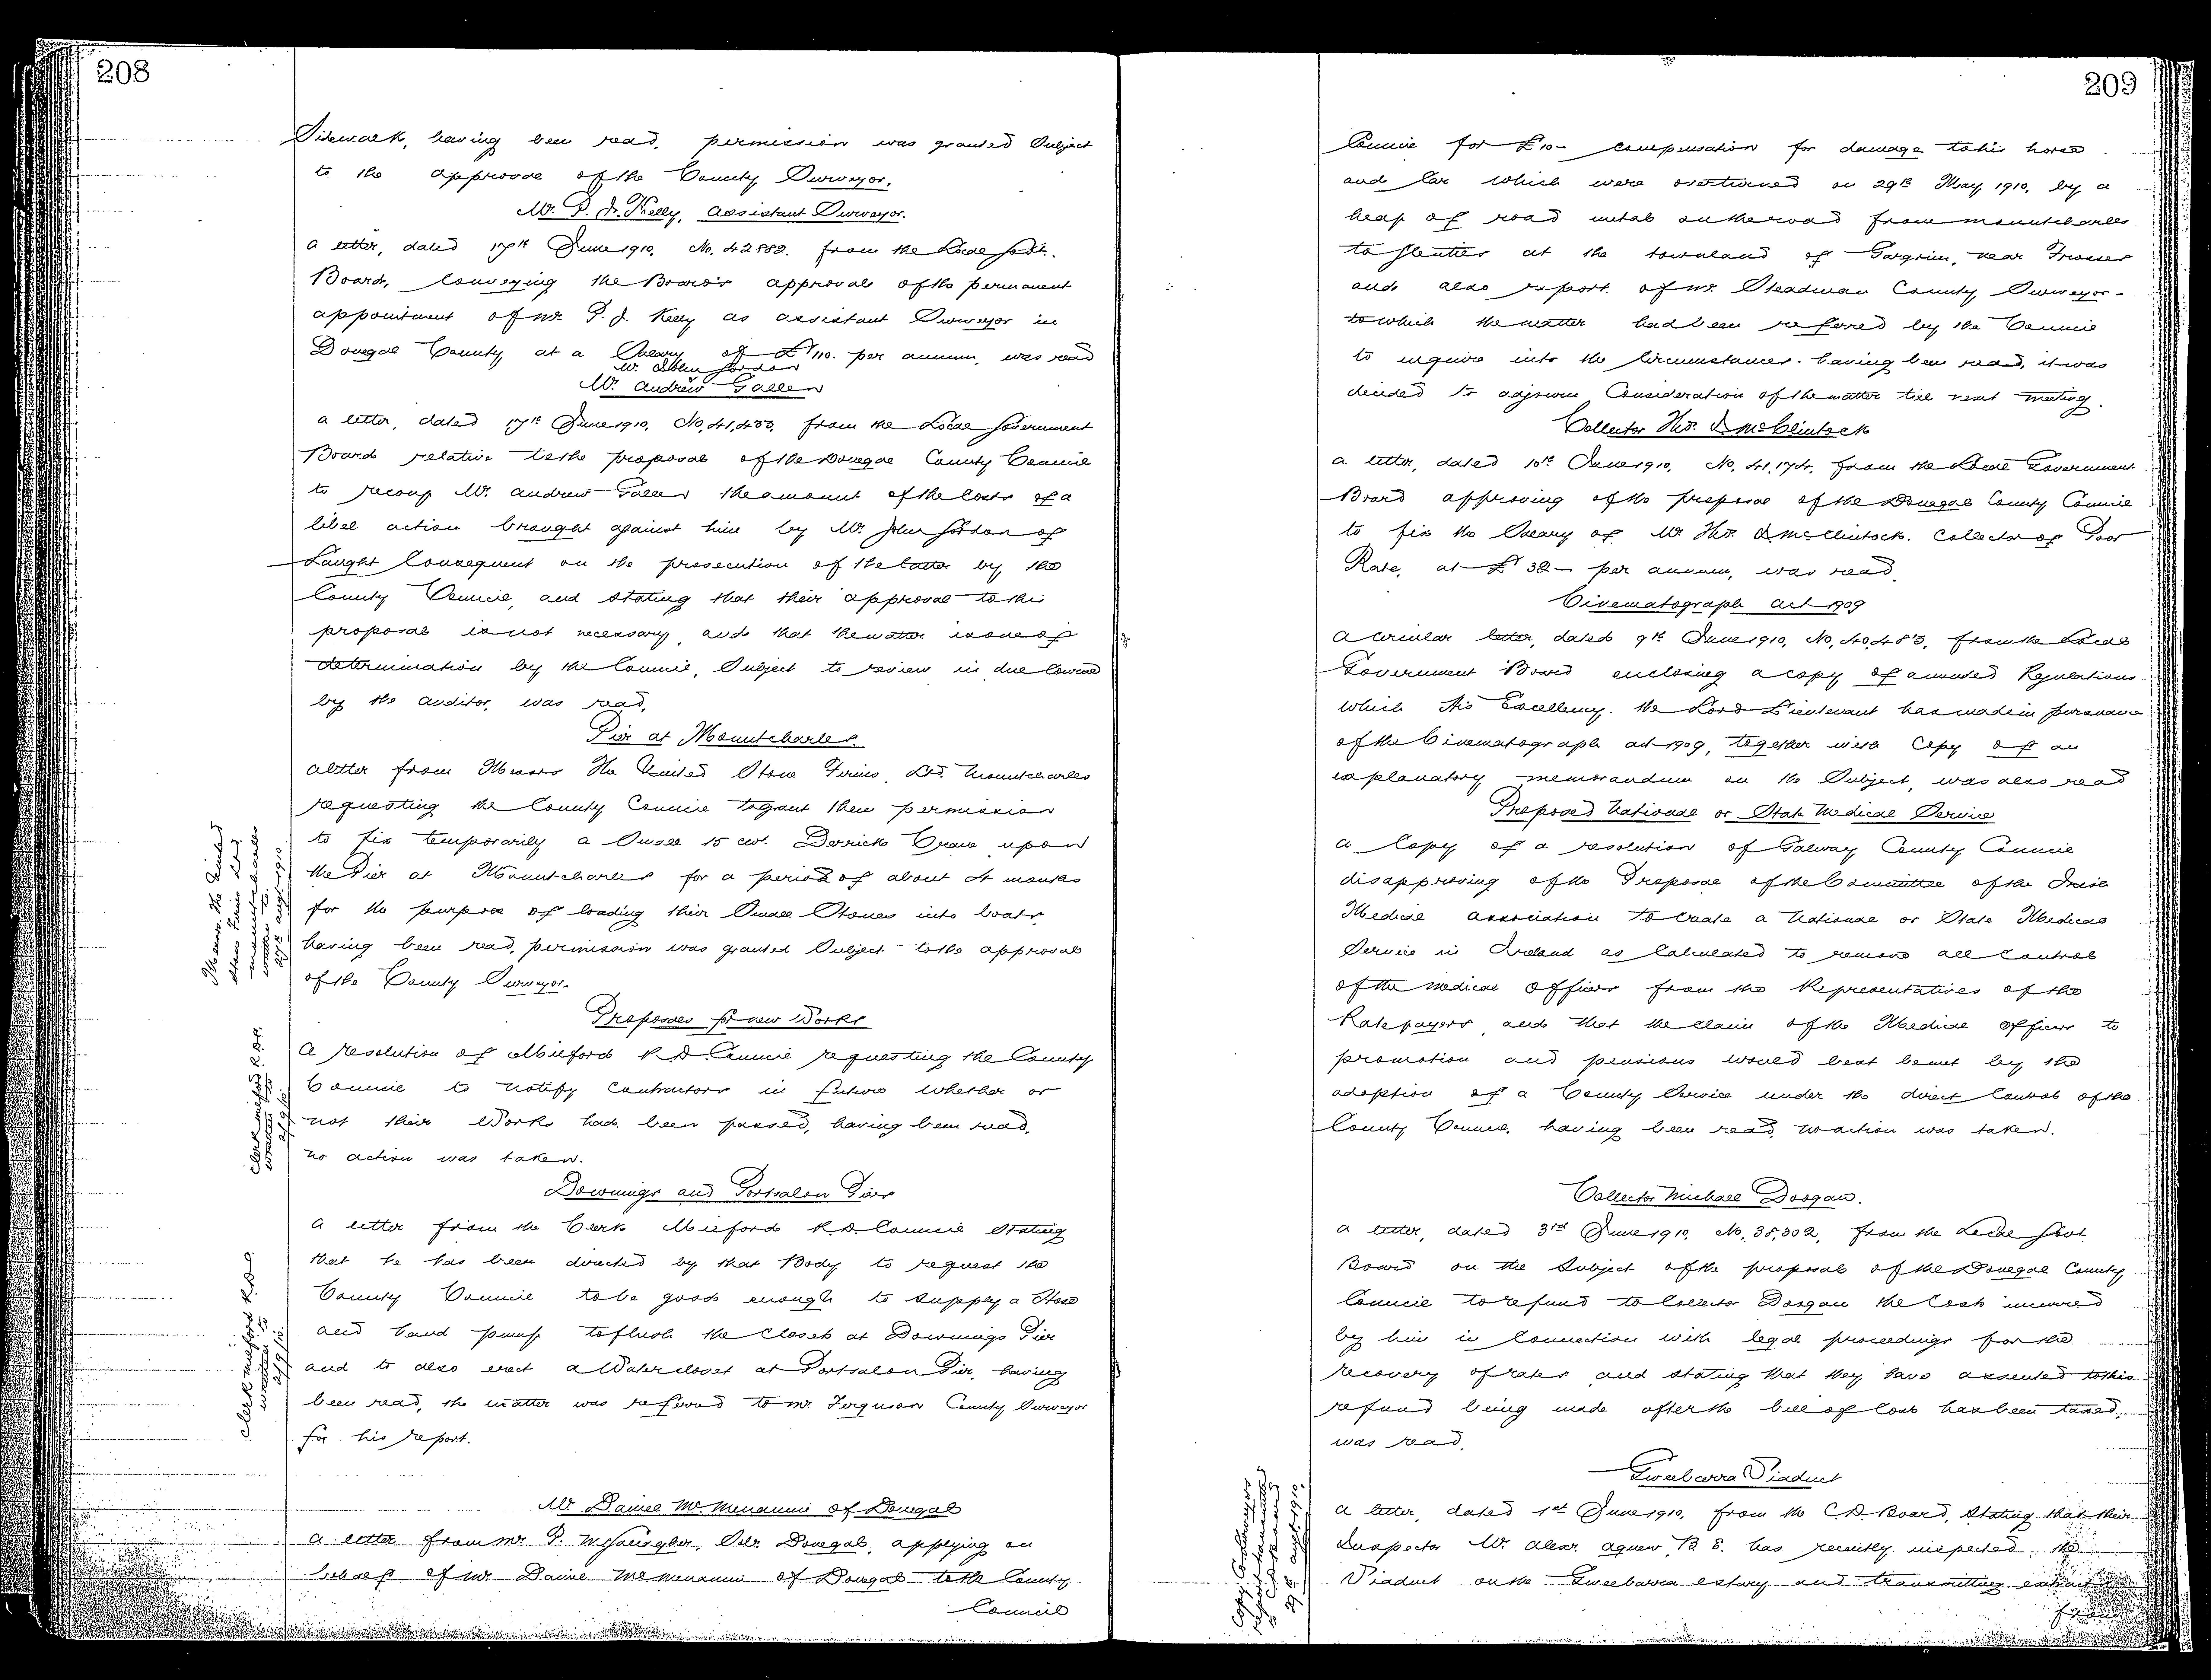 208
Sidewalk, having been read, permission was granted Subject
to the approval of the County Surveyor.
Mr. P. J. Kelly, Assistant Surveyor.
A letter, dated 17th June 1910, No. 42882. from the Local Govt.
Board, Conveying the Board's approval of the permanent
appointment of Mr. P. J. Kelly as assistant Surveyor in
Donegal County at a Salary of £110. per annum, was read
Mr. Andrew Gallen
a letter, dated 17th June 1910, No, 41,433, from the Local Government
Board relative to the proposal of the Donegal County Council
to recoup Mr. Andrew Gallen the amount of the Costs of a
libel action brought against him by Mr. John Jordan of
Laught Consequent on the prosecution of the latter by the
County Council, and stating that their approval to this
proposal is not necessary and that the matter is one of
determination by the Council, Subject to review in due Course
by the Auditor, was read.
Pier at Mountcharles.
A letter from Messrs The United Stone Firms, Ltd. Mountcharles
requesting the County Council to grant them permission
to fix temporarily a Small 15 cwt. Derrick Crane upon
the Pier at Mountcharles for a period of about months
for the purpose of loading their Small Stones into boats,
having been read, permission was granted Subject to the approval
of the County Surveyor.
Messrs. The United
Stone Firms Ltd
Mountcharles
written to
27th Augt 1910
Proposals for new Works
A resolution of Milford R. D. Council requesting the County
Council to notify Contractors in future whether or
not their Works had been passed, having been read,
no action was taken.
Clerk Milford R.D.C.
written to
2/9/10.
Downings and Portsalon Piers
A letter from the Clerk Milford R. D. Council Stating
that he has been directed by that Body to request the
County Council to be good enough to supply a Hose
and hand pump to flush the closet at Downings Pier
and to also erect a Watercloset at Portsalon Pier, having
been read, the matter was referred to Mr Ferguson County Surveyor
for his report.
Clerk Milford R.D.C.
written to
2/9/10.
Mr Daniel McMenamin of Donegal
A letter from Mr. P. M. Gallagher, Solr. Donegal, applying on
behalf of Mr Daniel McMenamin of Donegal to the County
Council
209
Council for £10- compensation for damage to his horse
and Car which were overturned on 29th May 1910, by a
heap of road metal on the road from Mountcharles
to Glenties at the townland of Gargrim, near Frosses
and also report of Mr. Steadman County Surveyor-
to which the matter had been referred by the Council
to inquire into the Circumstances- having been read, it was
decided to adjourn Consideration of the matter till next meeting.
Collector Thos. McClintock
A letter, dated 10th June 1910, No, 41,174, from the Local Government
Board approving of the proposal of the Donegal County Council
to fix the Salary of Mr. Thos. McClintock. Collector of Poor
Rate, at £32- per annum, was read.
Cinematograph Act 1909
A circular letter, dated 9th June 1910, No, 40,483, from the Local
Government Board enclosing a copy of amended Regulations
which His Excellency the Lord Lieutenant has made in pursuance
of the Cinematograph Act 1909, together with Copy of an
explanatory memorandum on the Subject, was also read
Proposed National or State Medical Service
A Copy of a resolution of Galway County Council
disapproving of the Proposal of the Committee of the Irish
Medical Association to create a National or State Medical
Service in Ireland as Calculated to remove all Control
of the Medical Officers from the Representatives of the
Ratepayers, and that the claim of the Medical Officers to
promotion and pensions would best be met by the
adoption of a County Service under the direct Control of the
County Council, having been read, no action was taken.
Collector Michael Doogan.
A letter, dated 3rd June 1910, No, 38,302, from the Local Govt
Board on the Subject of the proposal of the Donegal County
Council to refund to Collector Doogan the Cost incurred
by him in Connection with legal proceedings for the
recovery of rates and stating that they have assented to this
refund being made after the bill of Cost has been taxed,
was read.
Gweebarra Viaduct
A letter, dated 1st June 1910, from the C.D. Board, Stating that their
Inspector Mr. Alexr. Agnew, B.E. has recently inspected the
Viaduct on the Gweebarra estuary and transmitting extract
from